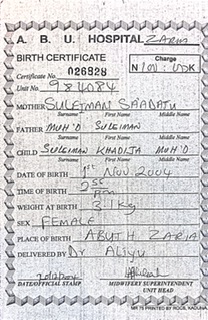 A. B. U. HOSPITAL ZARIA
BIRTH CERTIFICATE Charge
Certificate No. 026828 N 100:00K
Unit No. 984084
MOTHER SULEIMAN SAADATU
Surname First Name Middle Name
FATHER MUH'D SULEIMAN
Surname First Name Middle Name
CHILD SULEIMAN KHADIJA MUH'D
Surname First Name Middle Name
DATE OF BIRTH 1st NOV. 2004
TIME OF BIRTH 2 pm
WEIGHT AT BIRTH 3.1kg
SEX FEMALE
PLACE OF BIRTH ABUTH ZARIA
DELIVERED BY Dr ALIYU
DATE/OFFICIAL STAMP MIDWIFERY SUPERINTENDENT
UNIT HEAD
MR 75 PRINTED BY